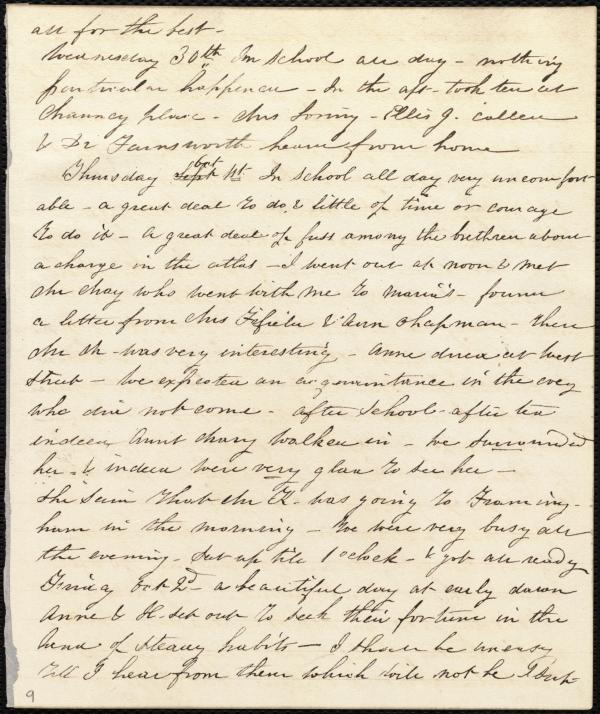 all for the best -
Wednesday 30th In school all day - nothing
particular happened - In the aft - took tea at
Chauncy place - Mrs Loring - Ellis G. called
& Dr Farnsworth heard from home
Thursday Sept Oct 1st In school all day very uncomfort
able - a great deal to do, & little of time or courage
to do it - A great deal of fuss among the brethren about
a charge in the atlas - I went out at noon & met
Mr May who went with me to Maria's - found
a letter from Mrs Fifield & Ann Chapman - There
Mr Ch - was very interesting - Anne dined at West
Street - We expected an acquaintance in the eveg
who did not come - after school - after tea
indeed Aunt Mary walked in - We surrounded
her - & indeed were very glad to see her -
She said that Mr K - was going to Framing-
ham in the morning - We were very busy all
the evening - Sat up till 1 o'clock - & got all ready
Friday Oct 2d - a beautiful day at early dawn
Anne & H - set out to seek their fortune in the
land of steady habits - I shall be uneasy
till I hear from them which will not be I sup-
9